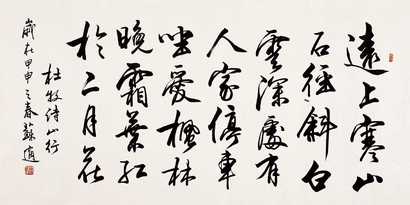 遠上寒山
石徑斜白
雲深處有
人家停車
坐愛楓林
晚霜葉紅
於二月花
杜牧詩山行
歲在甲申之春蘇適